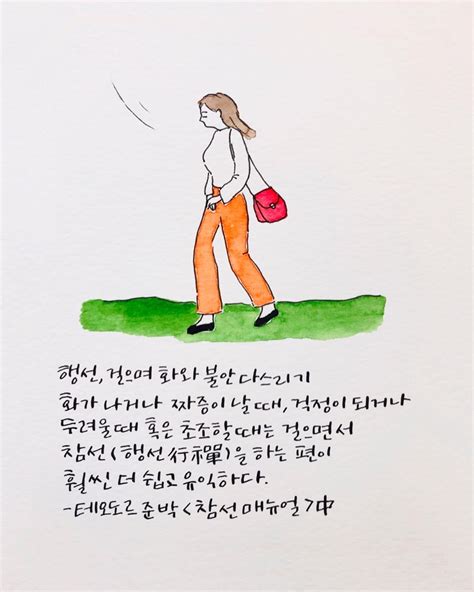 행선, 걸으며 화와 불안 다스리기
화가 나거나 짜증이 날 때, 걱정이 되거나
두려울 때 혹은 초조할 때는 걸으면서
참선(행선行禪)을 하는 편이
훨씬 더 쉽고 유익하다.
-테오도르 준 박 <참선 매뉴얼>中